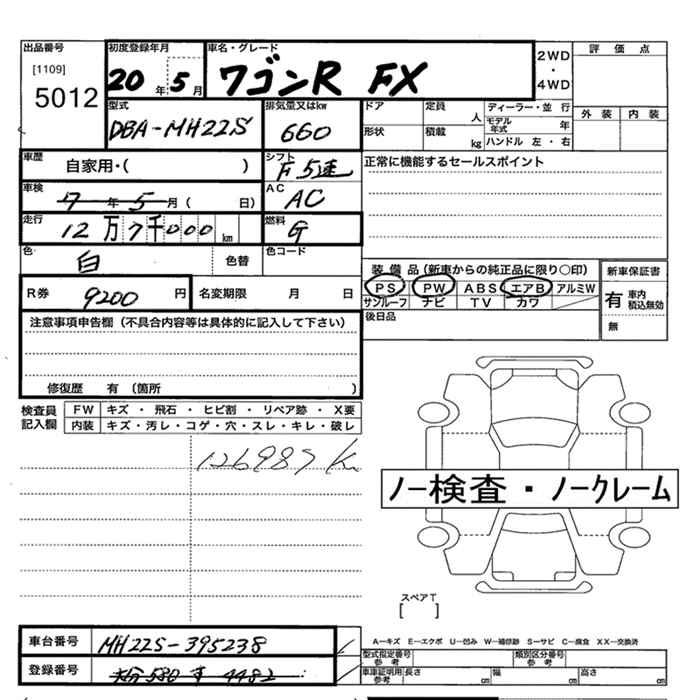 出品番号 初度登録年月 車名・グレード 2WD・4WD 評価点
[1109] 5012 20年5月 ワゴンR FX
型式 排気量又はkw ドア 定員 人 ディーラー・並行 外装 内装
DBA-MH22S 660 形状 積載 kg モデル年式 年 ハンドル 左・右
車歴 自家用・( ) シフト F5速 正常に機能するセールスポイント
車検 7年5月( 日) AC AC
走行 12万7千000km 燃料 G
色 白 色替 色コード
装備品(新車からの純正品に限り○印) 新車保証書
R券 9200円 名変期限 月 日 PS PW ABS エアB アルミW 有 車内積込無効
サンルーフ ナビ TV カワ
注意事項申告欄(不具合内容等は具体的に記入して下さい) 後日品 無
修復歴 有(箇所 )
検査員記入欄 FW キズ・飛石・ヒビ割・リペア跡・X要
内装 キズ・汚レ・コゲ・穴・スレ・キレ・破レ
126987Km
ノー検査・ノークレーム
スペアT
[ ]
車台番号 MH22S-395238 A-キズ E-エクボ U-凹み W-補修跡 S-サビ C-腐食 XX-交換済
型式指定番号参考 類別区分番号参考
登録番号 大分580 す 4482 車庫証明用参考 長さ cm 幅 cm 高さ cm